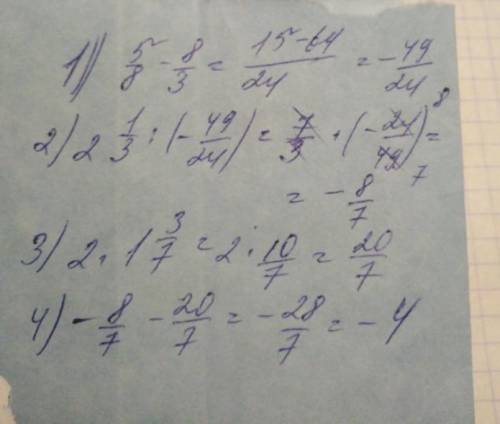 1) 5/8 - 8/3 = (15-64)/24 = -49/24
2) 2 1/3 : (-49/24) = 7/3 · (-24/49) = 8 7
= -8/7
3) 2 · 1 3/7 = 2 · 10/7 = 20/7
4) -8/7 - 20/7 = -28/7 = -4